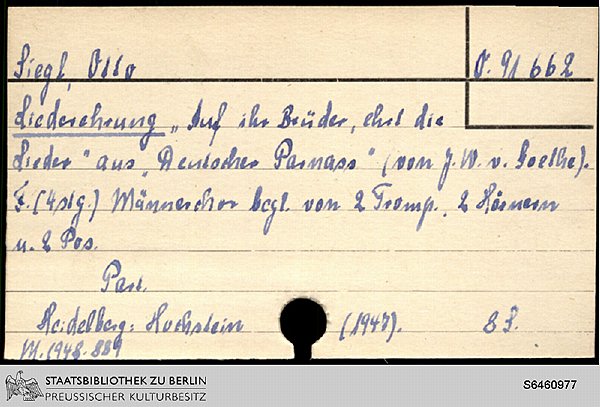 Siegl, Otto
O. 91662
Liederehrung „Auf ihr Brüder, ehrt die
Lieder" aus „Deutscher Parnass" (von J. W. v. Goethe).
F. (4stg.) Männerchor begl. von 2 Tromp., 2 Hörnern
u. 2 Pos.
Part.
Heidelberg: Hochstein (1947). 8 S.
M. 1948. 889
STAATSBIBLIOTHEK ZU BERLIN
PREUSSISCHER KULTURBESITZ
S6460977